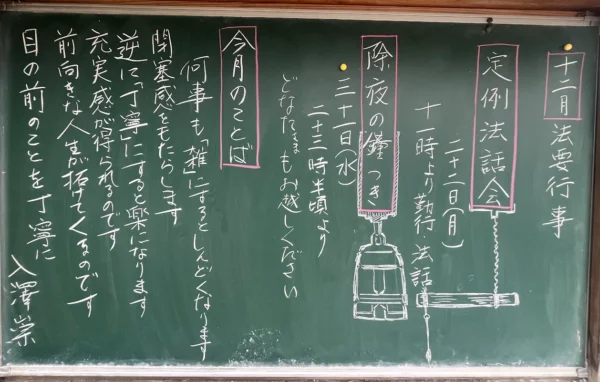 十二月 法要行事
定例法話会
二十二日(月)
十一時より 勤行 法話
除夜の鐘つき
三十一日(水)
二十三時半頃より
どなたさまもお越しください
今月のことば
何事も「雑」にするとしんどくなります
閉塞感をもたらします
逆に「丁寧」にすると楽になります
充実感が得られるのです
前向きな人生が拓けてくるのです
目の前のことを丁寧に
入澤崇